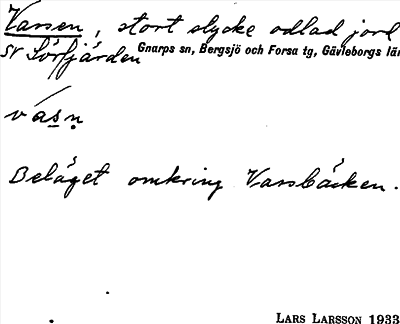 Varsen, stort stycke odlad jord
sv Sörfjärden Gnarps sn, Bergsjö och Forsa tg, Gävleborgs län
vásṇ
Beläget omkring Varsbäcken.
LARS LARSSON 1933